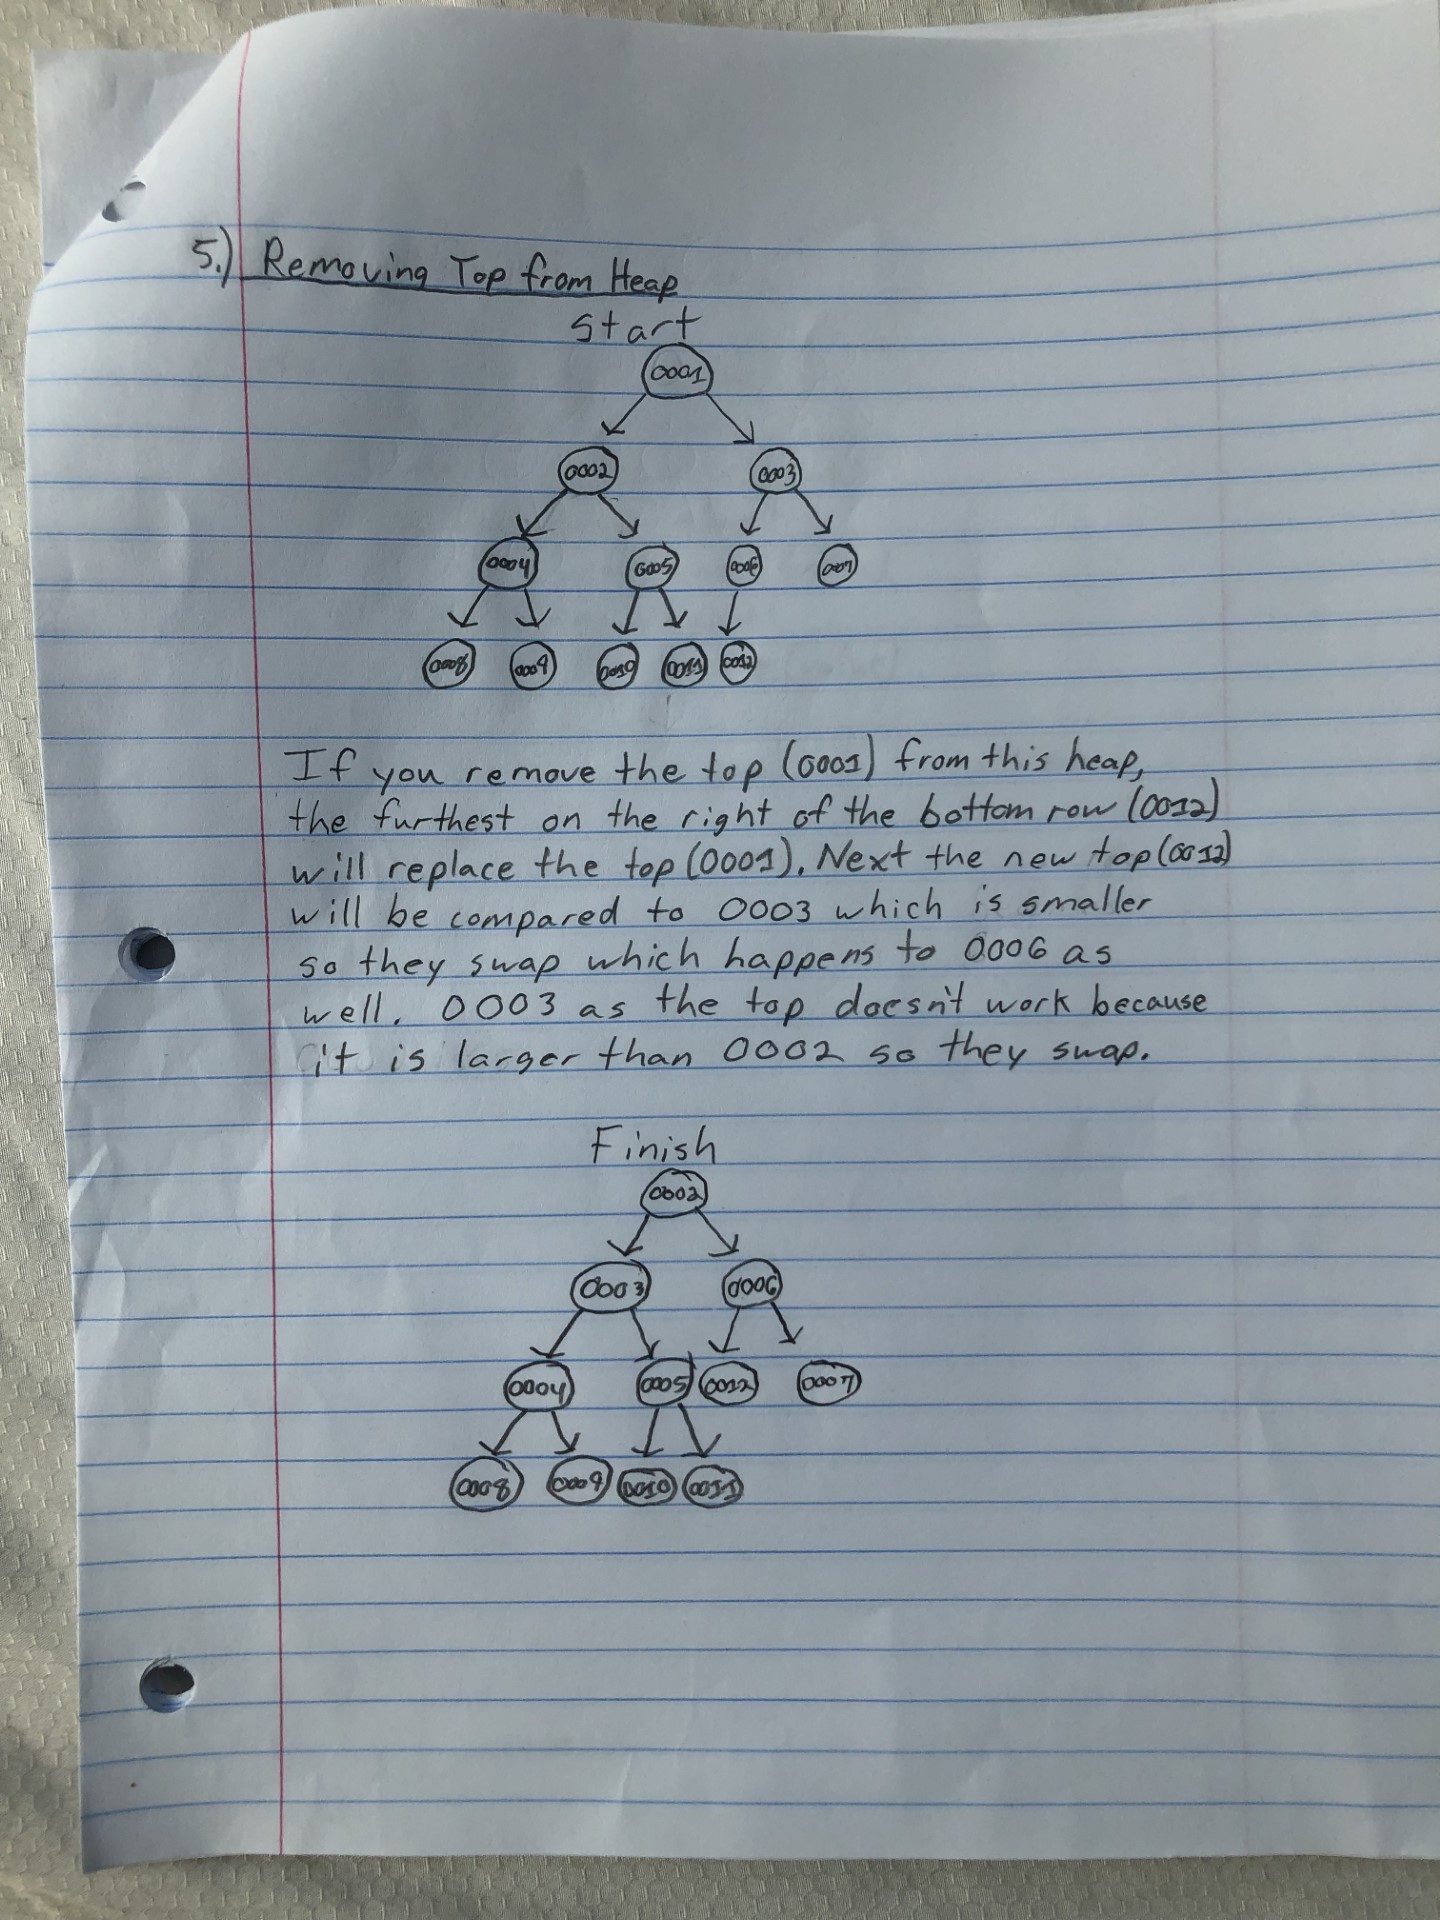 5.) Removing Top from Heap
Start
0001
0002 0003
0004 0005 0006 0007
0008 0009 0010 0011 0012
If you remove the top (0001) from this heap,
the furthest on the right of the bottom row (0012)
will replace the top (0001). Next the new top (0012)
will be compared to 0003 which is smaller
so they swap which happens to 0006 as
well. 0003 as the top doesn't work because
it is larger than 0002 so they swap.
Finish
0002
0003 0006
0004 0005 0012 0007
0008 0009 0010 0011